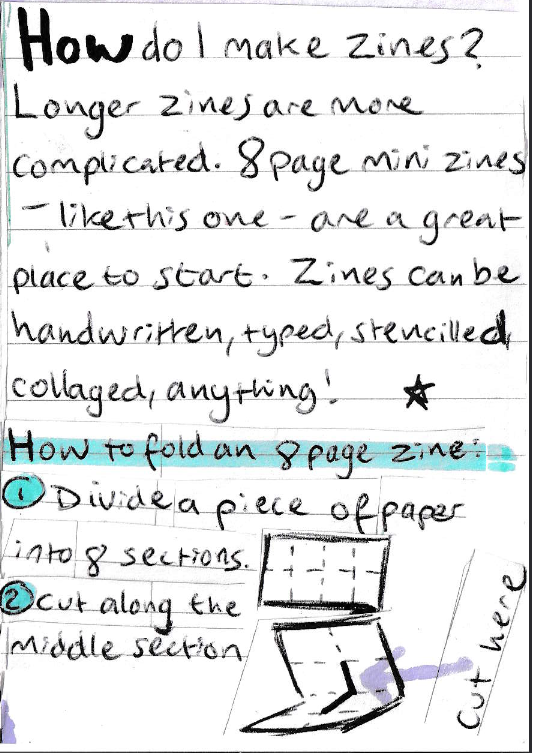 How do I make zines?
Longer zines are more
complicated. 8 page mini zines
- like this one - are a great
place to start. Zines can be
handwritten, typed, stencilled,
collaged, anything!
How to fold an 8 page zine:
1 Divide a piece of paper
into 8 sections.
2 cut along the
middle section
cut here